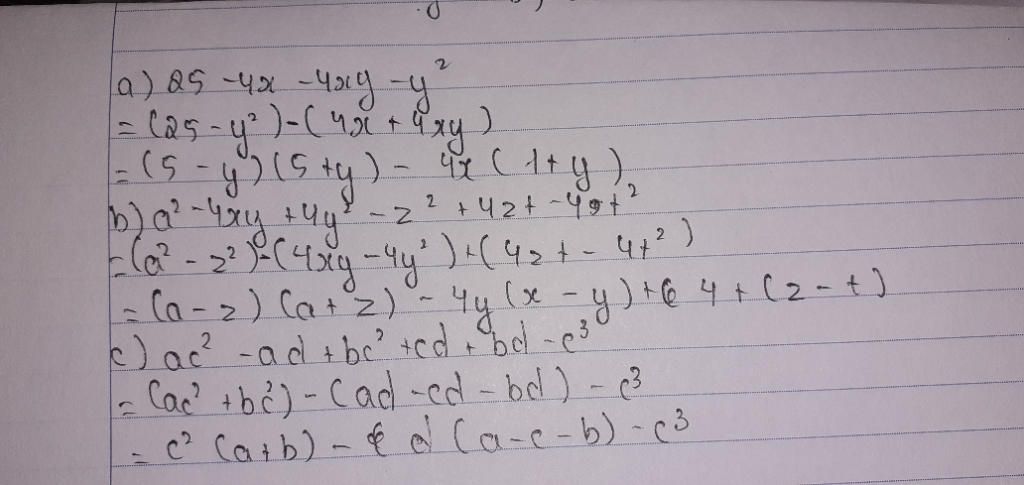 a) 25 -4x -4xy -y²
= (25 - y²) - (4x + 4xy)
= (5 - y) (5 + y) - 4x (1 + y)
b) a² - 4xy + 4y² - z² + 4zt - 4t²
= (a² - z²) - (4xy - 4y²) + (4zt - 4t²)
= (a - z) (a + z) - 4y (x - y) + 4t (z - t)
c) ac² - ad + bc² + cd + bd - c³
= (ac² + bc²) - (ad - cd - bd) - c³
= c² (a + b) - d (a - c - b) - c³